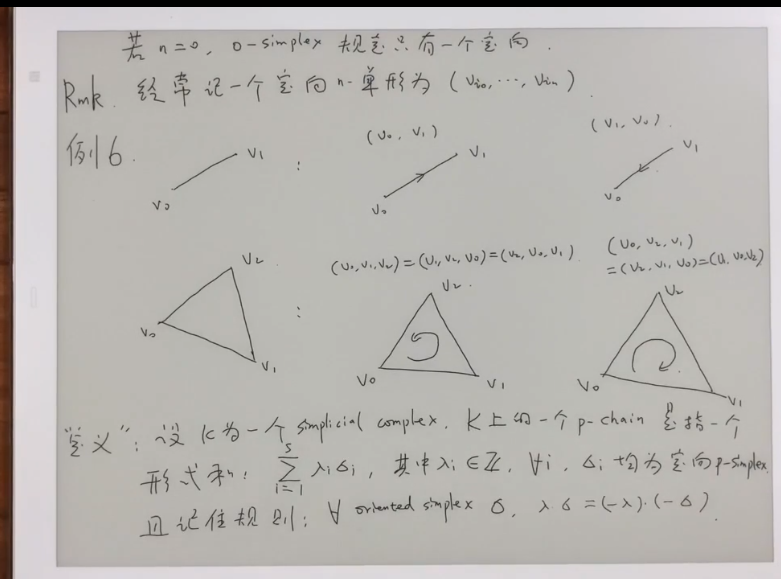 若 n=0, 0-simplex 规定只有一个定向.
Rmk. 经常记一个定向 n-单形为 (v_{i0}, ..., v_{in}).
例6.
v₀ v₁ : (v₀, v₁) v₀ v₁ (v₁, v₀) v₀ v₁
(v₀,v₁,v₂)=(v₁,v₂,v₀)=(v₂,v₀,v₁)
(v₀,v₂,v₁)
=(v₂,v₁,v₀)=(v₁,v₀,v₂)
v₀ v₁ v₂ : v₀ v₁ v₂ v₀ v₁ v₂
"定义": 设 K 为一个 simplicial complex. K 上的一个 p-chain 是指一个
形式和: \sum_{i=1}^{s} λ_i σ_i, 其中 λ_i ∈ ℤ, ∀i, σ_i 均为定向 p-simplex
且记住规则: ∀ oriented simplex σ, λσ=(-λ)·(-σ).